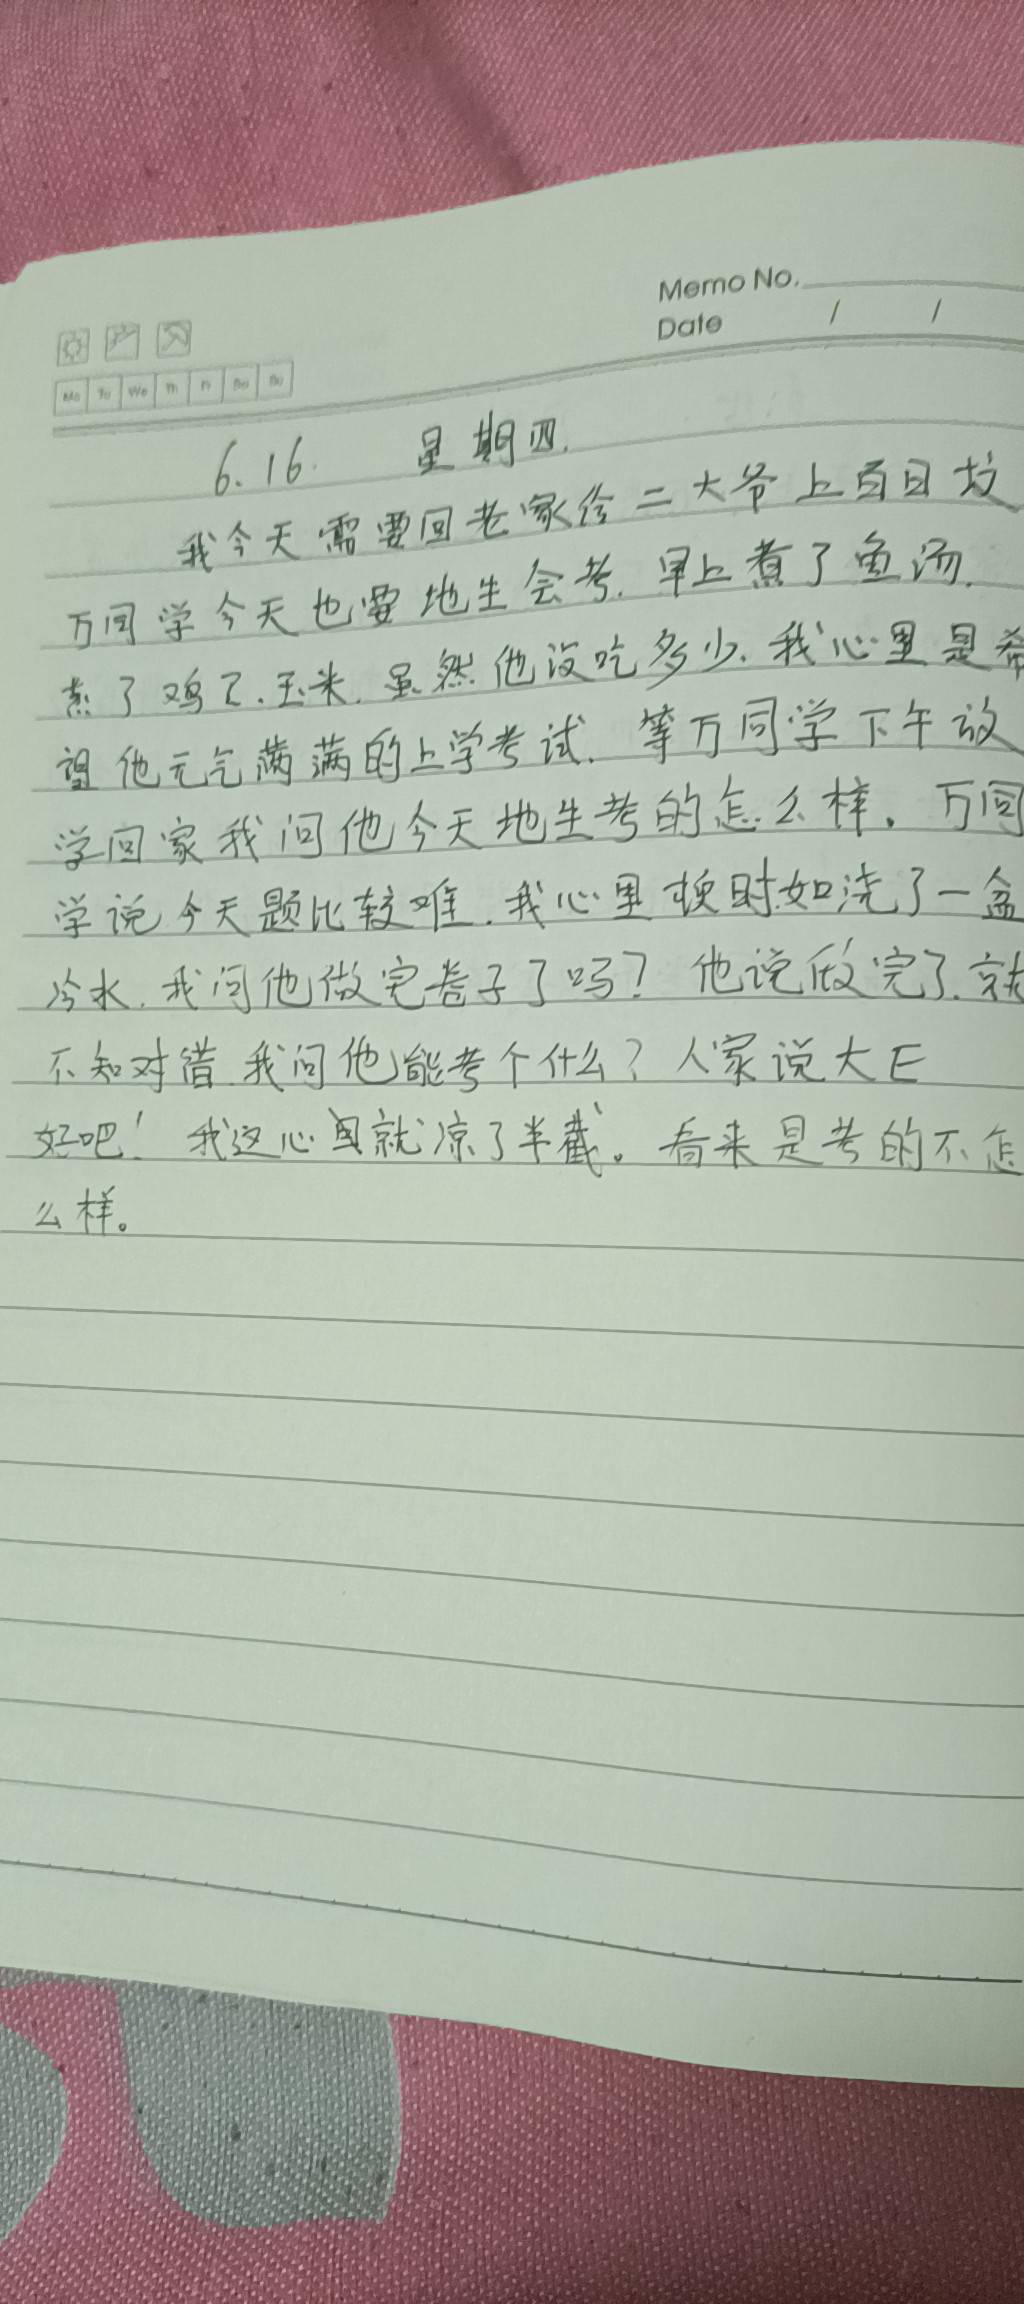 Memo No.
Date / /
Mo Tu We Th Fr Sa Su
6.16. 星期四.
我今天需要回老家给二大爷上百日坟
万同学今天也要地生会考.早上煮了鱼汤.
煮了鸡了.玉米.虽然他没吃多少.我心里是希
望他元气满满的上学考试.等万同学下午放
学回家我问他今天地生考的怎么样。万同
学说今天题比较难.我心里顿时如浇了一盆
冷水.我问他做完卷子了吗?他说做完了.就
不知对错.我问他能考个什么?人家说大E
好吧!我这心里就凉了半截。看来是考的不怎
么样。